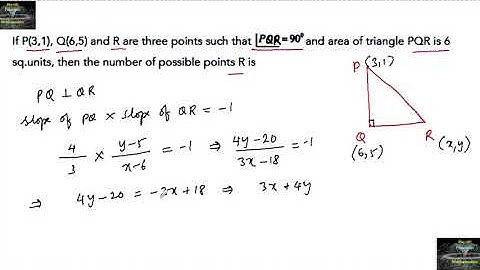 If P(3,1), Q(6,5) and R are three points such that ∠PQR = 90° and area of triangle PQR is 6
sq.units, then the number of possible points R is
PQ ⊥ QR
slope of PQ × slope of QR = -1
4/3 × y-5/x-6 = -1 ⇒ 4y-20/3x-18 = -1
⇒ 4y-20 = -3x+18 ⇒ 3x+4y
P (3,1)
Q
(6,5)
R
(x,y)